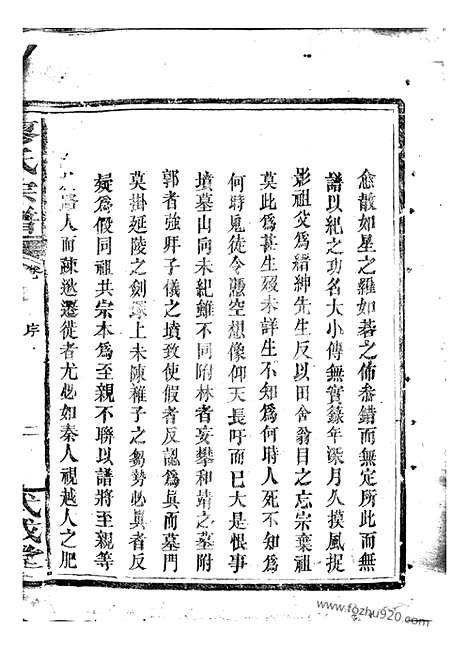 愈散如星之羅如碁之佈番錯而無定所此而無
譜以紀之功名大小傳無實錄年深月久摸風捉
影祖父爲縉紳先生反以田舍翁目之忘宗棄祖
莫此爲甚生歿未詳生不知爲何時人死不知爲
何時鬼徒令憑空想像仰天長吁而已大是恨事
墳墓山向未紀雖不同附林者妄攀和靖之墓附
郭者強拜子儀之墳致使假者反認爲眞而墓門
莫掛延陵之劍塚上未陳稚子之芻勢必眞者反
疑爲假同祖共宗本爲至親不聯以譜將至親等
路人而疎逖遷徙者尤必如秦人視越人之肥
廖氏宗譜
序
二
武威堂
www.fozhu920.com